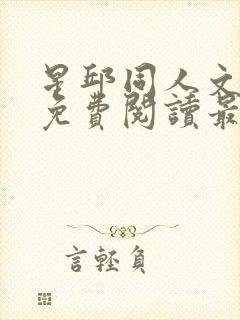 星邱同人文
免費閱讀最
言輕負